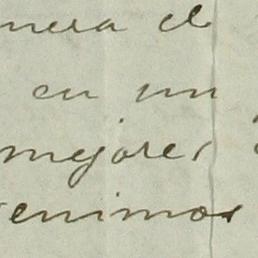 nera el
en un
mejores
venimos